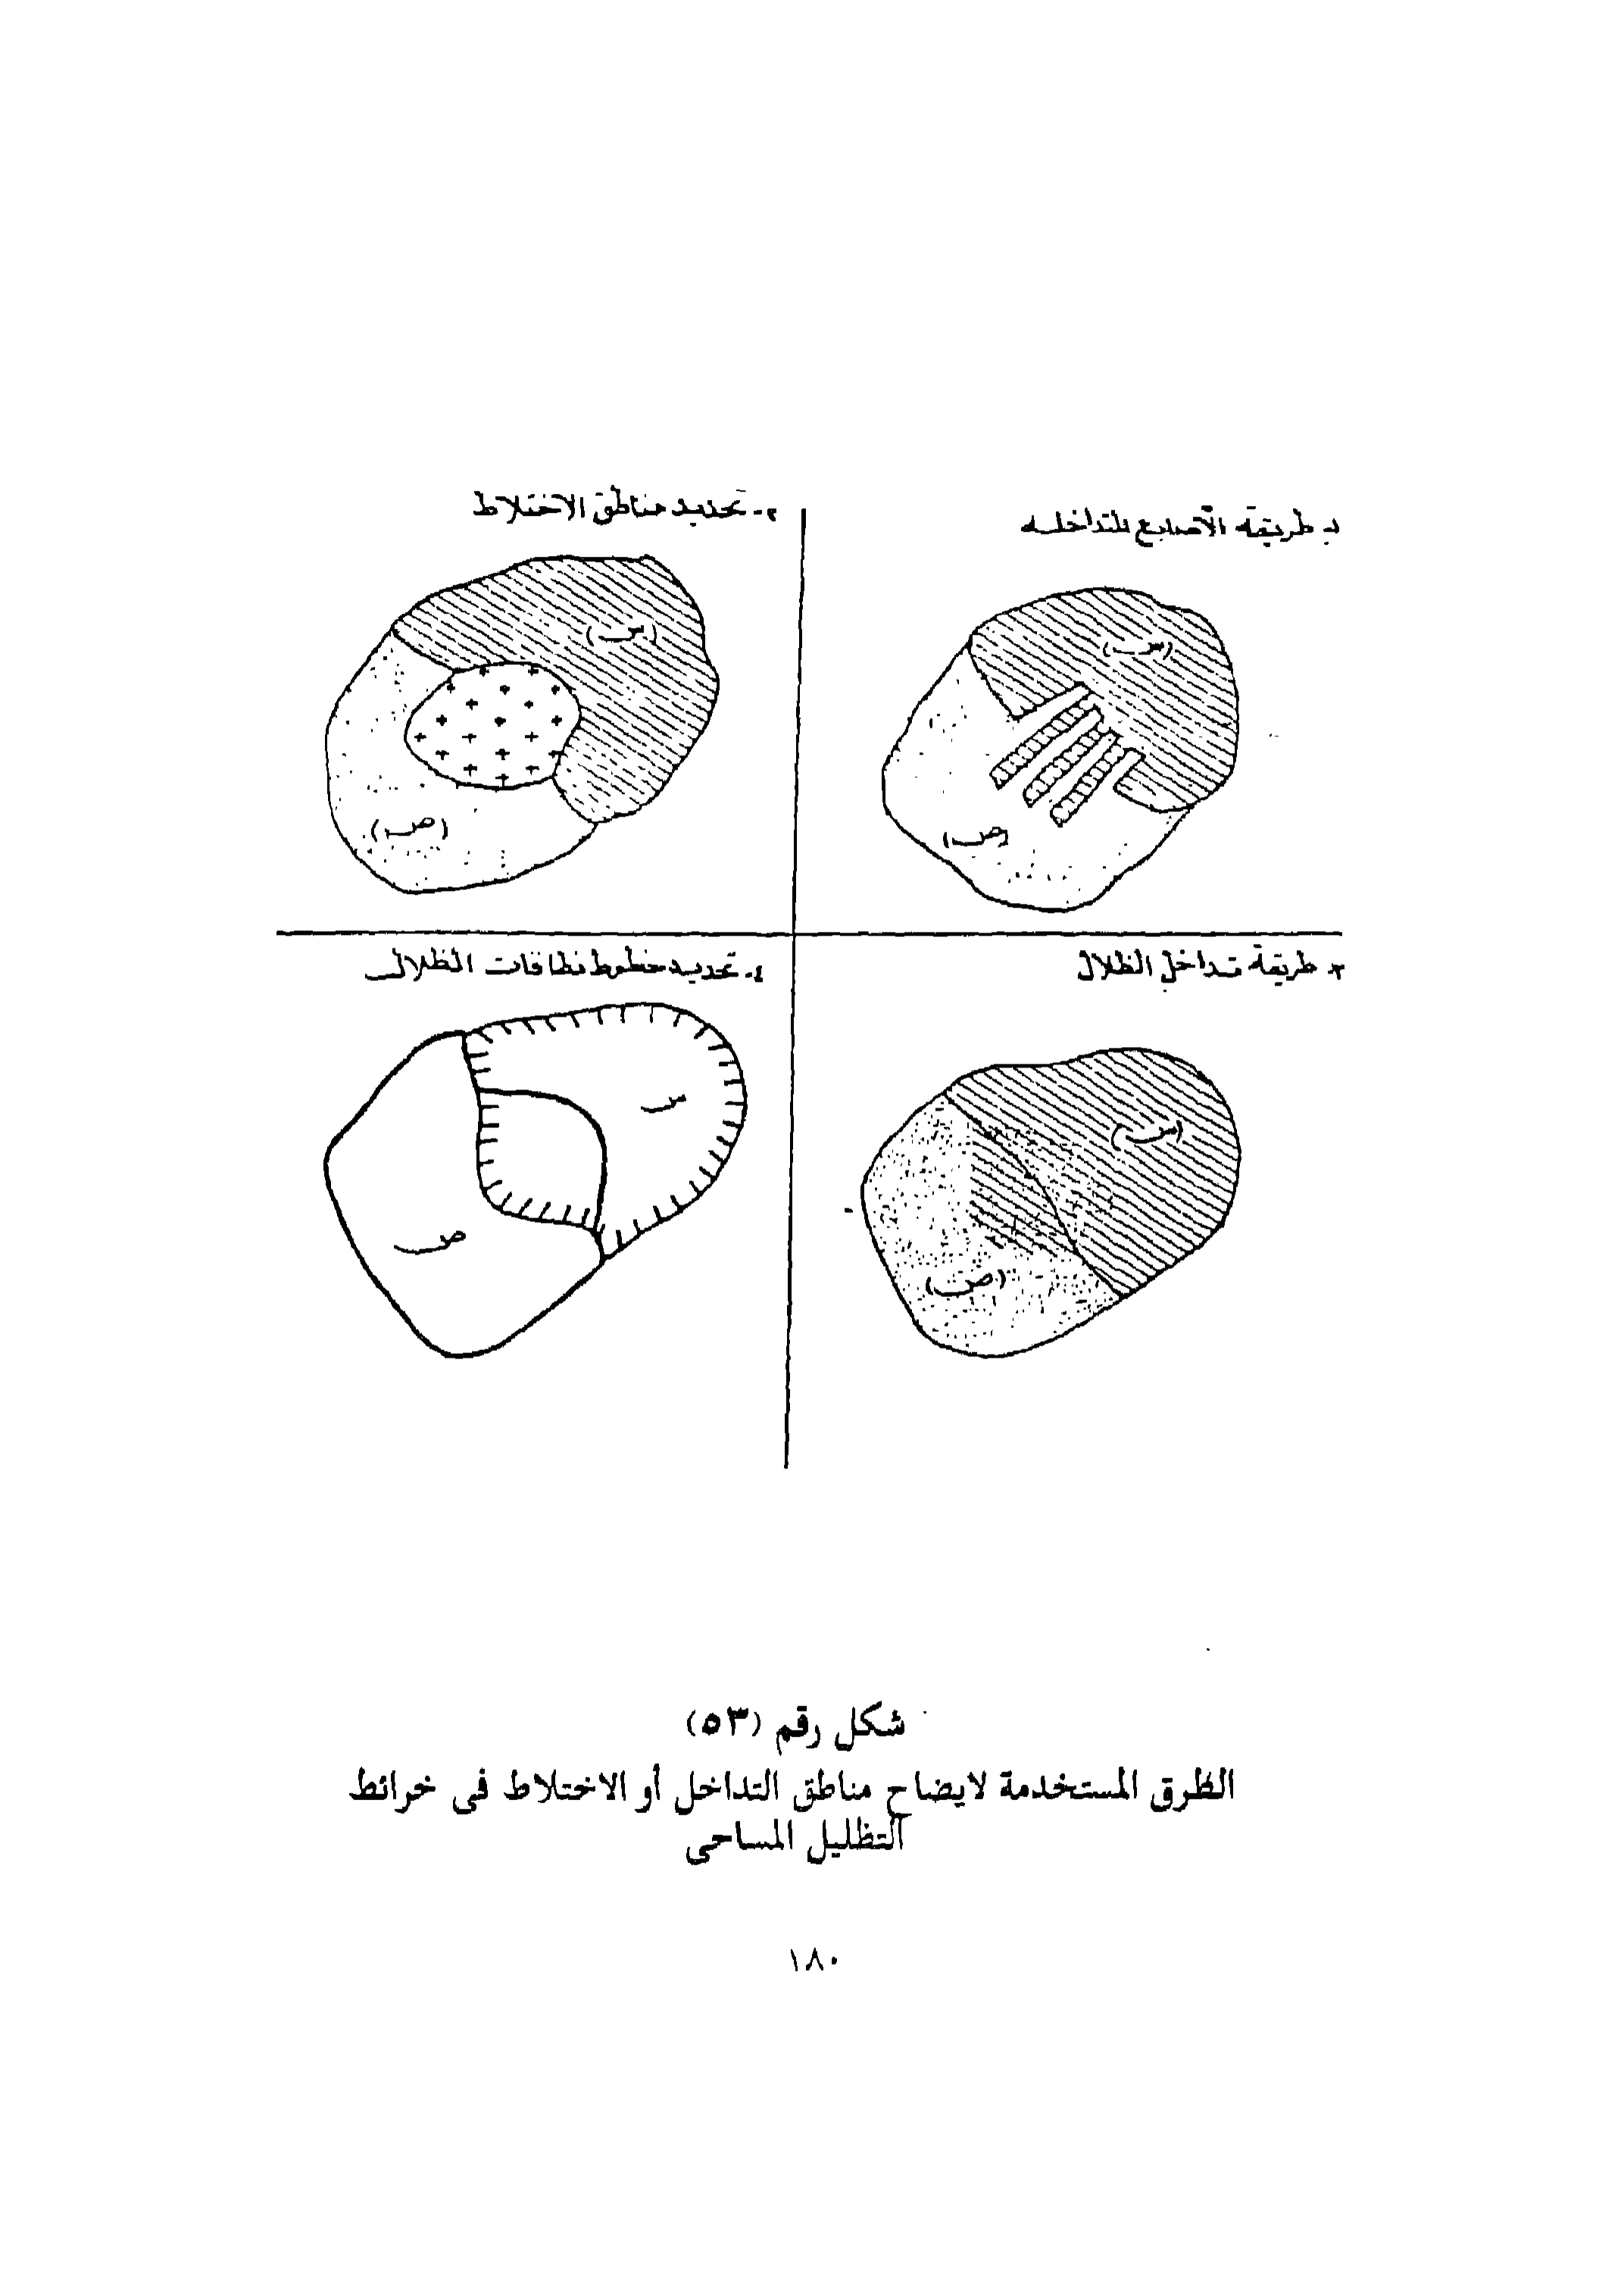 ١ـ طريقة الأصابع المتداخله
٢ـ تحديد مناطق الاختلاط
(س)
(س)
(ص)
(ص)
٣ـ طريقة تداخل الظلال
٤ـ تحديد خطوط نطاقات الظلال
س
(س)
ص
(ص)
شكل رقم (٥٣)
الطرق المستخدمة لايضاح مناطق التداخل أو الاختلاط فى خرائط
التظليل المساحى
١٨٠